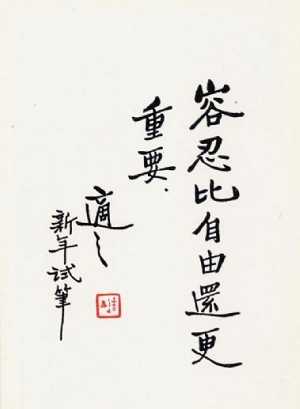 容忍比自由還更
重要.
適之
新年試筆